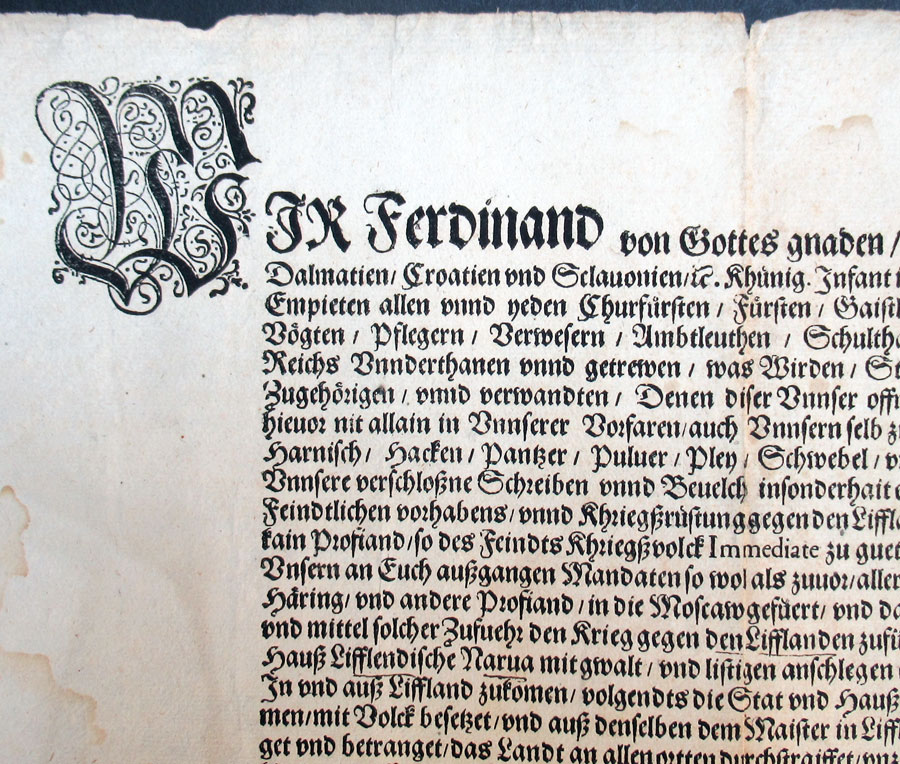 WIR Ferdinand von Gottes gnaden /
Dalmatien / Croatien vnd Sclauonien / ꝛc. Khünig. Infant
Empieten allen vnnd yeden Churfürsten / Fürsten / Gaistl
Vögten / Pflegern / Verwesern / Ambtleuthen / Schultha
Reichs Vnnderthanen vnnd getrewen / was Wirden / St
Zugehörigen / vnnd verwandten / Denen diser Vnnser offn
hieuor nit allain in Vnnserer Vorfaren / auch Vnnsern selb
Harnisch / Hacken / Pantzer / Puluer / Pley / Schwebel /
Vnnsere verschloßne Schreiben vnnd Beuelch insonderhait
Feindtlichen vorhabens / vnnd Khriegßrüstung gegen den Liffl
kain Profiand / so des Feindts Khriegßvolck Immediate zu guet
Vnsern an Euch außgangen Mandaten so wol als zuuor / aller
Häring / vnd andere Profiand / in die Moscaw gefüert / vnd
vnd mittel solcher Zufuehr den Krieg gegen den Lifflanden zufü
Hauß Lifflendische Narua mit gwalt / vnd listigen anschlegen
In vnd auß Liffland zukomen / volgendts die Stat vnd Hauß
men / mit Volck besetzet / vnd auß denselben dem Maister in Liff
get vnd betranget / das Landt an allen ortten durchstraiffet /